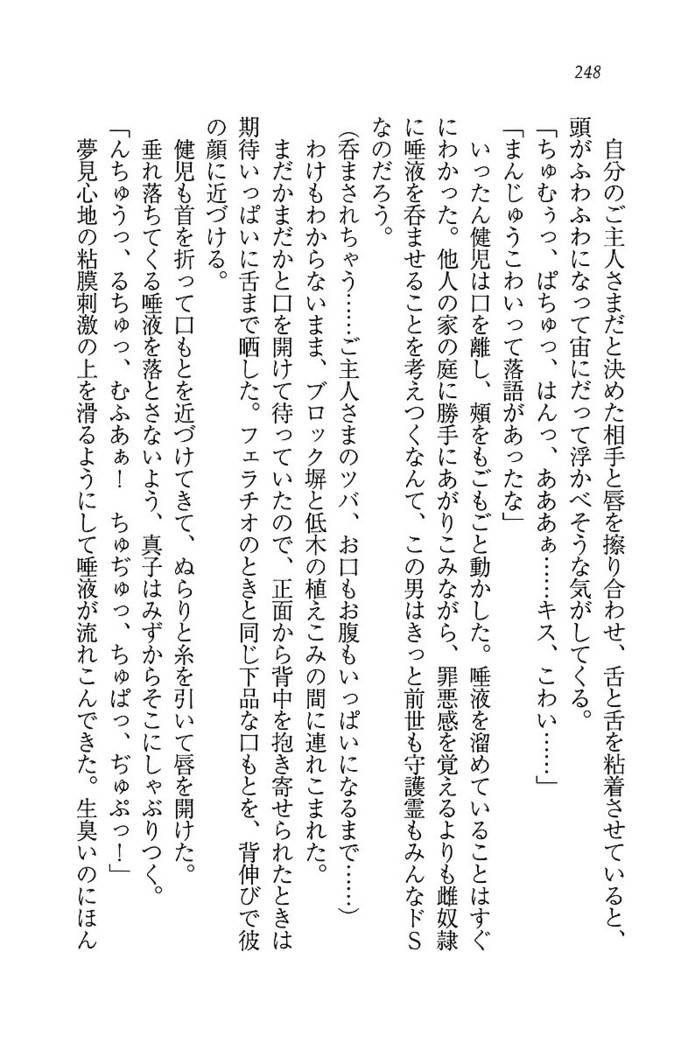 248
自分のご主人さまだと決めた相手と唇を擦り合わせ、舌と舌を粘着させていると、
頭がふわふわになって宙にだって浮かべそうな気がしてくる。
「ちゅむぅっ、ぱちゅっ、はんっ、あああぁ……キス、こわい……」
「まんじゅうこわいって落語があったな」
いったん健児は口を離し、頰をもごもごと動かした。唾液を溜めていることはすぐ
にわかった。他人の家の庭に勝手にあがりこみながら、罪悪感を覚えるよりも雌奴隷
に唾液を呑ませることを考えつくなんて、この男はきっと前世も守護霊もみんなドS
なのだろう。
(呑まされちゃう……ご主人さまのツバ、お口もお腹もいっぱいになるまで……)
わけもわからないまま、ブロック塀と低木の植えこみの間に連れこまれた。
まだかまだかと口を開けて待っていたので、正面から背中を抱き寄せられたときは
期待いっぱいに舌まで晒した。フェラチオのときと同じ下品な口もとを、背伸びで彼
の顔に近づける。
健児も首を折って口もとを近づけてきて、ぬらりと糸を引いて唇を開けた。
垂れ落ちてくる唾液を落とさないよう、真子はみずからそこにしゃぶりつく。
「んちゅうっ、るちゅっ、むふあぁ！　ちゅぢゅっ、ちゅぱっ、ぢゅぷっ！」
夢見心地の粘膜刺激の上を滑るようにして唾液が流れこんできた。生臭いのにほん